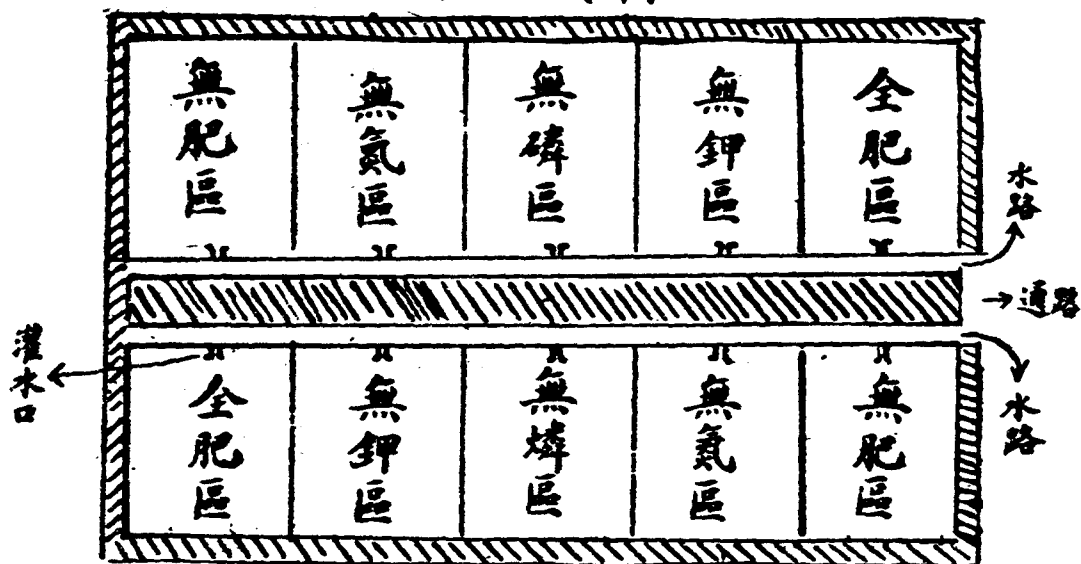 無肥區
無氮區
無磷區
無鉀區
全肥區
水路
通路
灌水口
全肥區
無鉀區
無燐區
無氮區
無肥區
水路